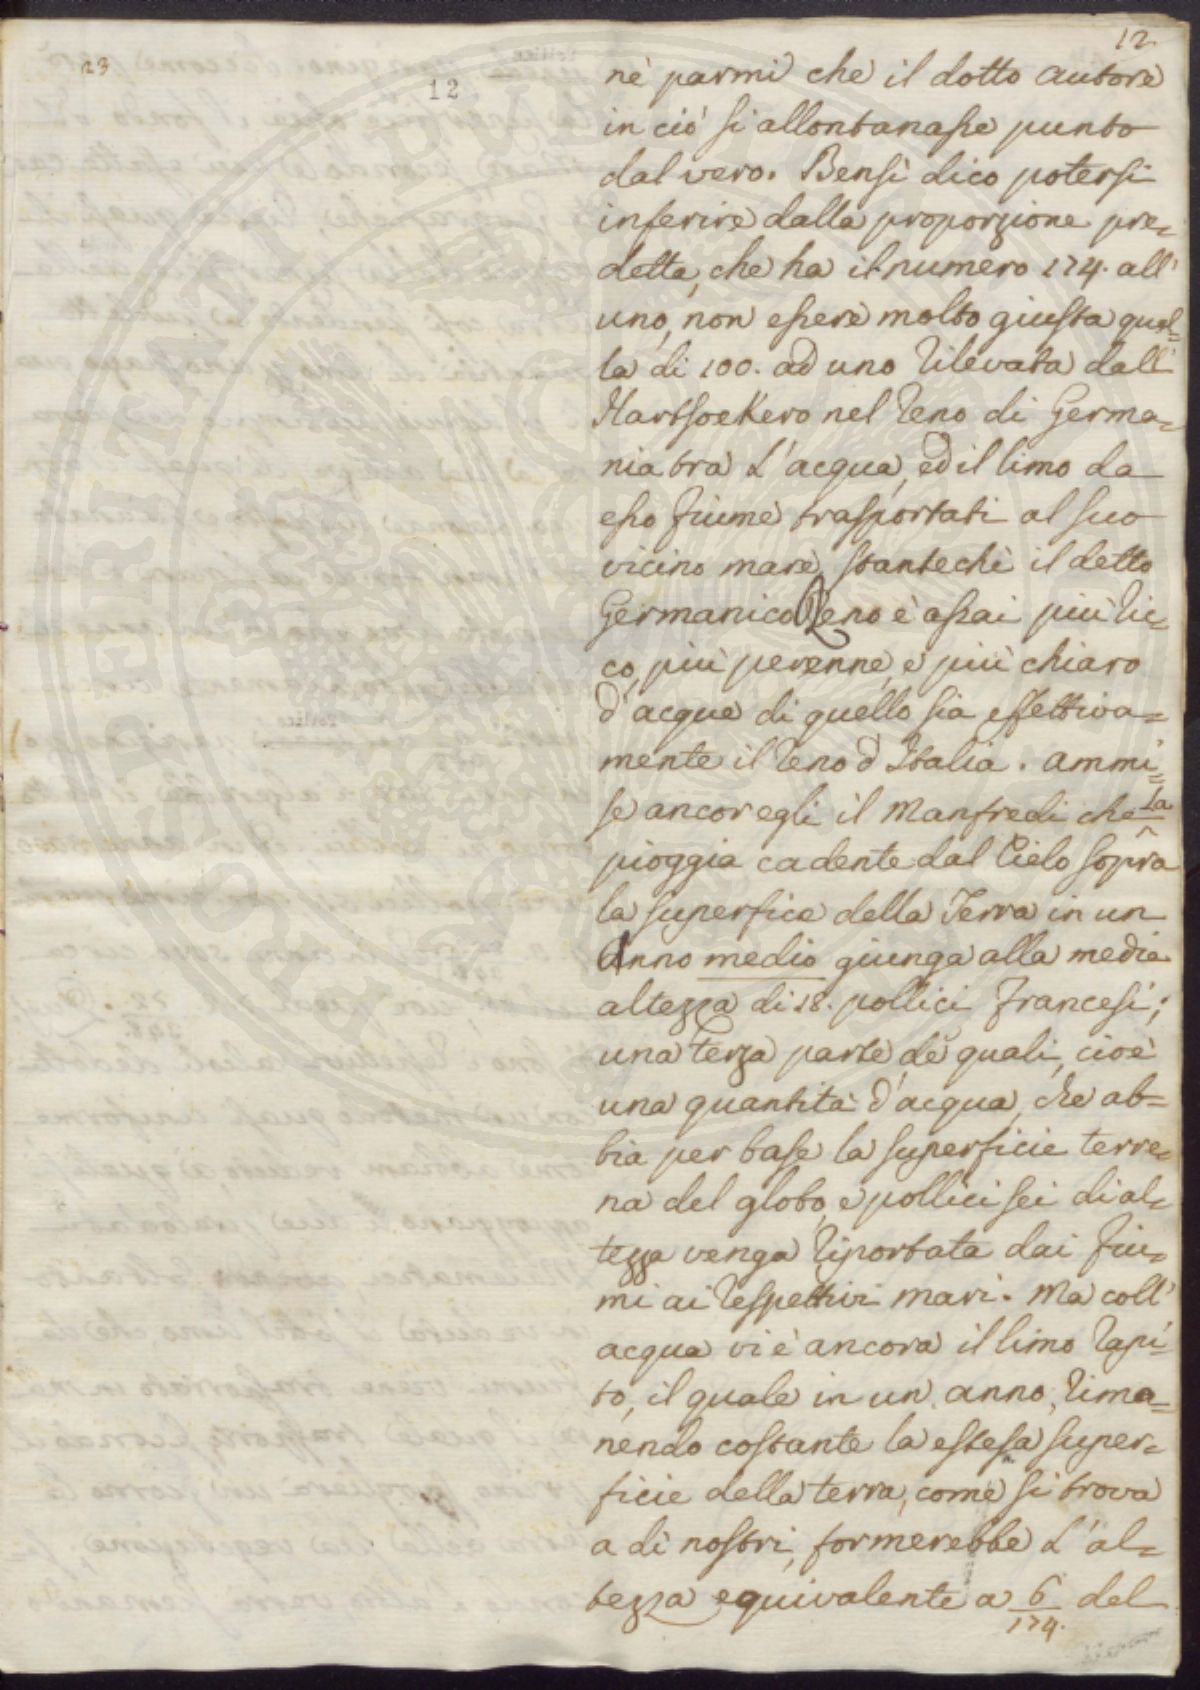 12.
23
12
nè parmi che il dotto Autore
in ciò si allontanasse punto
dal vero. Bensì dico potersi
inferire dalla proporzione pre=
detta, che ha il numero 174. all'
uno, non essere molto giusta quel=
la di 100. ad uno rilevata dall'
Hartsoekero nel Reno di Germa=
nia tra l'acqua, ed il limo da
esso fiume trasportati al suo
vicino mare, stantechè il detto
Germanico Reno è assai più ric=
co, più perenne, e più chiaro
d'acque di quello sia effettiva=
mente il Reno d'Italia. Ammi=
se ancor egli il Manfredi che la
pioggia cadente dal Cielo sopra
la superfice della Terra in un
Anno medio giunga alla media
altezza di 18. pollici Francesi;
una terza parte de quali, cioè
una quantità d'acqua, che ab=
bia per base la superficie terre=
na del globo, e pollici sei di al=
tezza venga riportata dai fiu=
mi ai respettivi mari. Ma coll'
acqua vi è ancora il limo rapi=
to, il quale in un anno, rima=
nendo costante la estesa super=
ficie della terra, come si trova
a dì nostri, formerebbe l'al=
tezza equivalente a 6/174. del